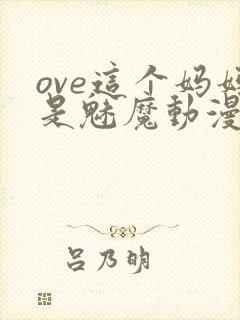 ove這个妈妈
是魅魔動漫
吕乃明